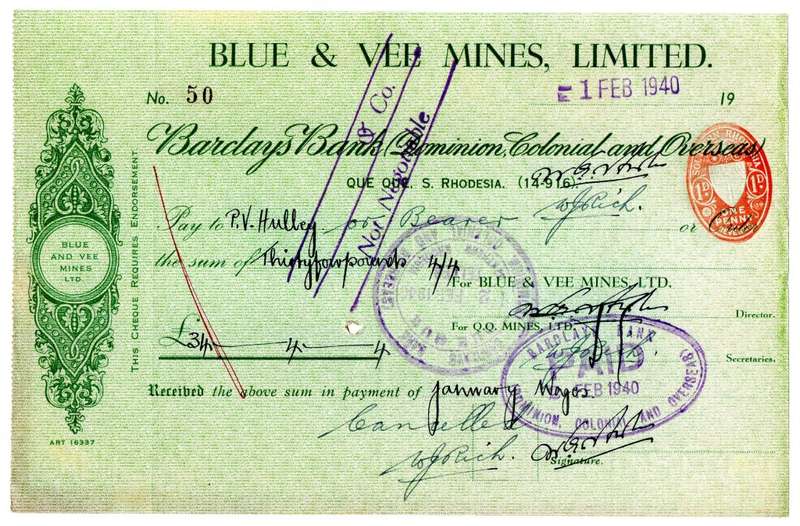 BLUE & VEE MINES, LIMITED.
No. 50
1 FEB 1940
19
& Co.
Not Negotiable
Barclays Bank (Dominion, Colonial and Overseas)
QUE QUE, S. RHODESIA. (14-916)
W J Rich.
Pay to P.V. Hulley or Bearer or Order
the sum of Thirtyfourpounds 4/4
For BLUE & VEE MINES, LTD.
Director.
For Q.Q. MINES, LTD.
Secretaries.
£34 - 4 - 4
Received the above sum in payment of January Wages
Cancelled
W J Rich.
Signature.
BARCLAYS BANK
PAID
FEB 1940
(DOMINION, COLONIAL AND OVERSEAS)
SOUTHERN RHODESIA
1D 1D
ONE PENNY
BLUE
AND VEE
MINES
LTD.
THIS CHEQUE REQUIRES ENDORSEMENT
ART 16337